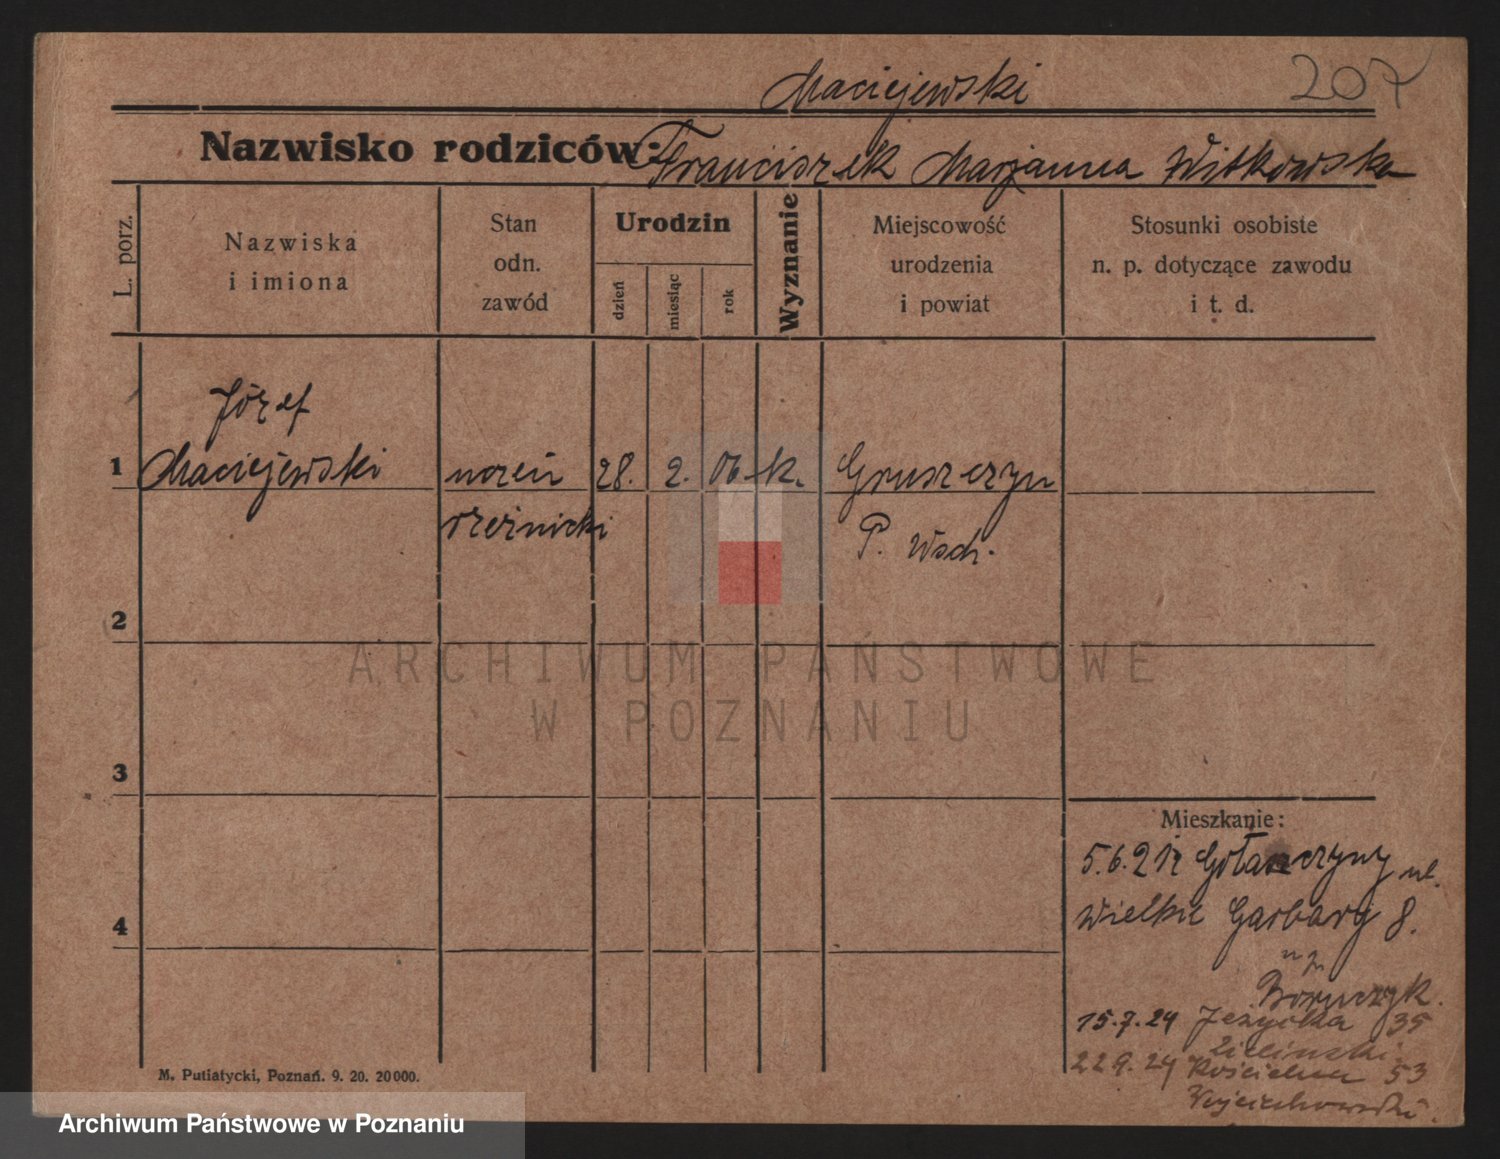 Maciejewski 207
Nazwisko rodziców: Franciszek Marjanna Witkowska
L. porz.
Nazwiska
i imiona
Stan
odn.
zawód
Urodzin
dzień
miesiąc
rok
Wyznanie
Miejscowość
urodzenia
i powiat
Stosunki osobiste
n. p. dotyczące zawodu
i t. d.
Józef
1 Maciejewski uczeń 28. 2. 06 k. Gruszczyn
rzeźnicki P. Wsch.
2
3
4
Mieszkanie:
5.6.21 z Gołańczyny ul.
Wielkie Garbary 8.
u p.
Boruczyk.
15.7.24 Jeżycka 35
Zieliński
22 9. 24 Kościelna 53
Wojciechowski.
M. Putiatycki, Poznań. 9. 20. 20000.
ARCHIWUM PAŃSTWOWE
W POZNANIU
Archiwum Państwowe w Poznaniu